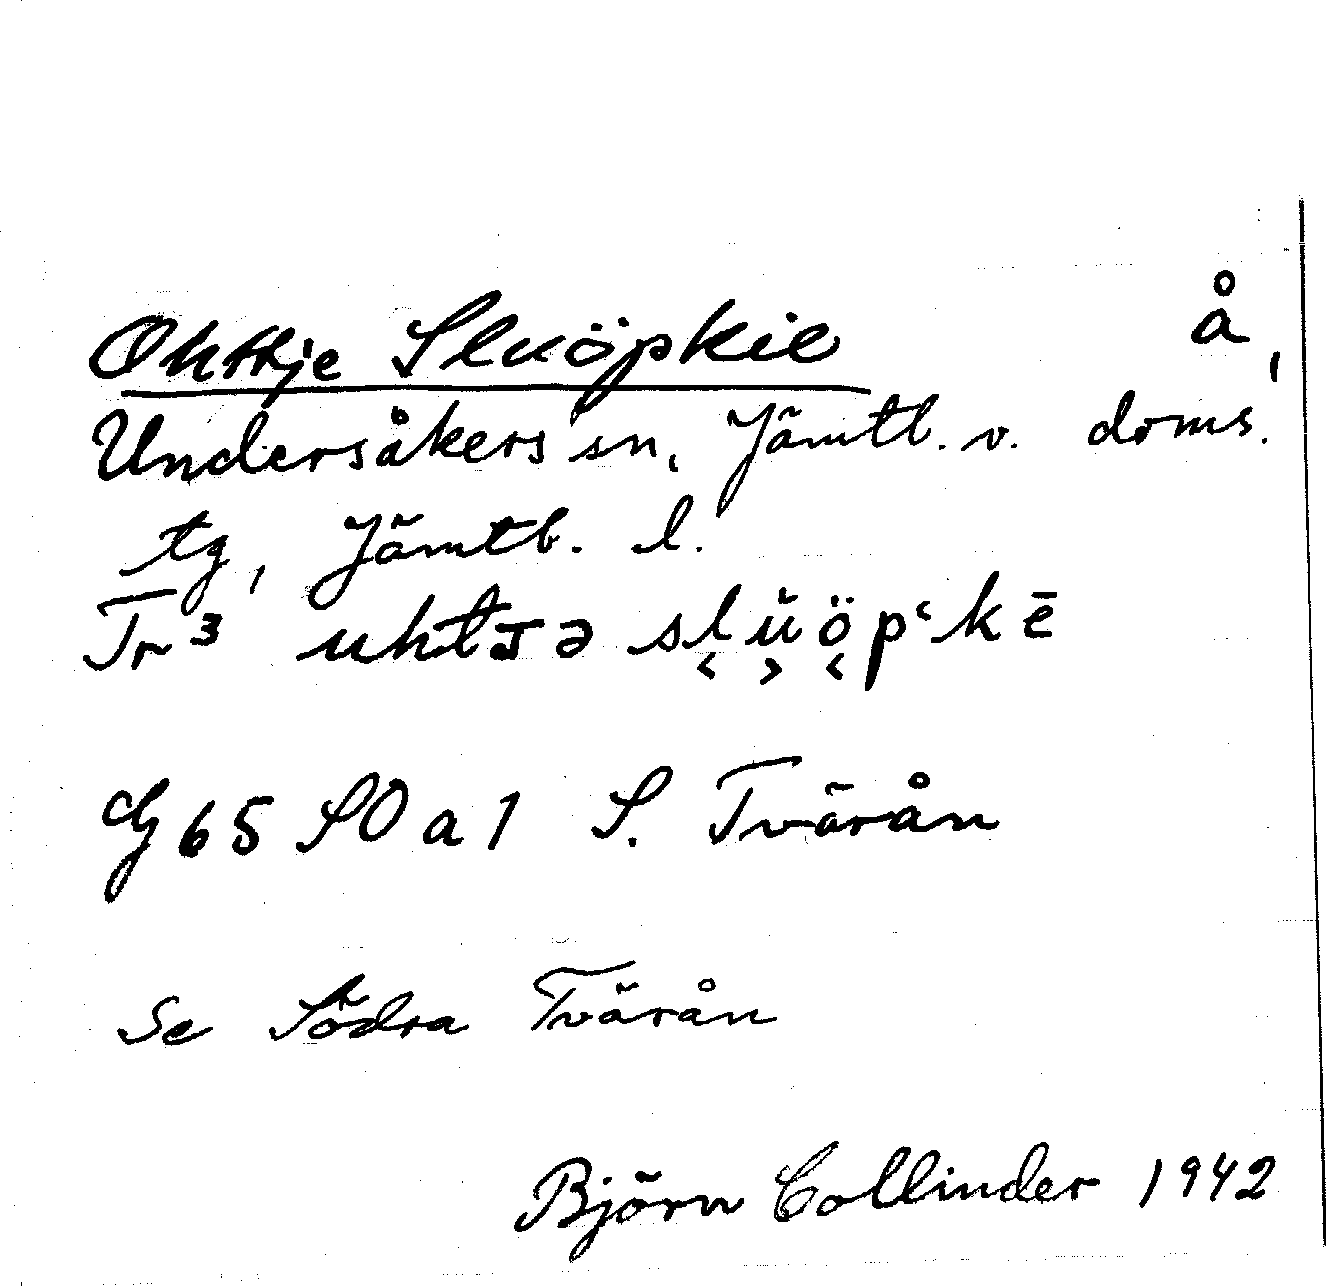 Ohttje Sluöpkie å,
Undersåkers sn, Jämtl. v. doms.
tg, Jämtl. l.
Tr³ uhtɪə sl̬ŭöpʿkē
G 65 SO a 1 S. Tvärån
Se Södra Tvärån
Björn Collinder 1942